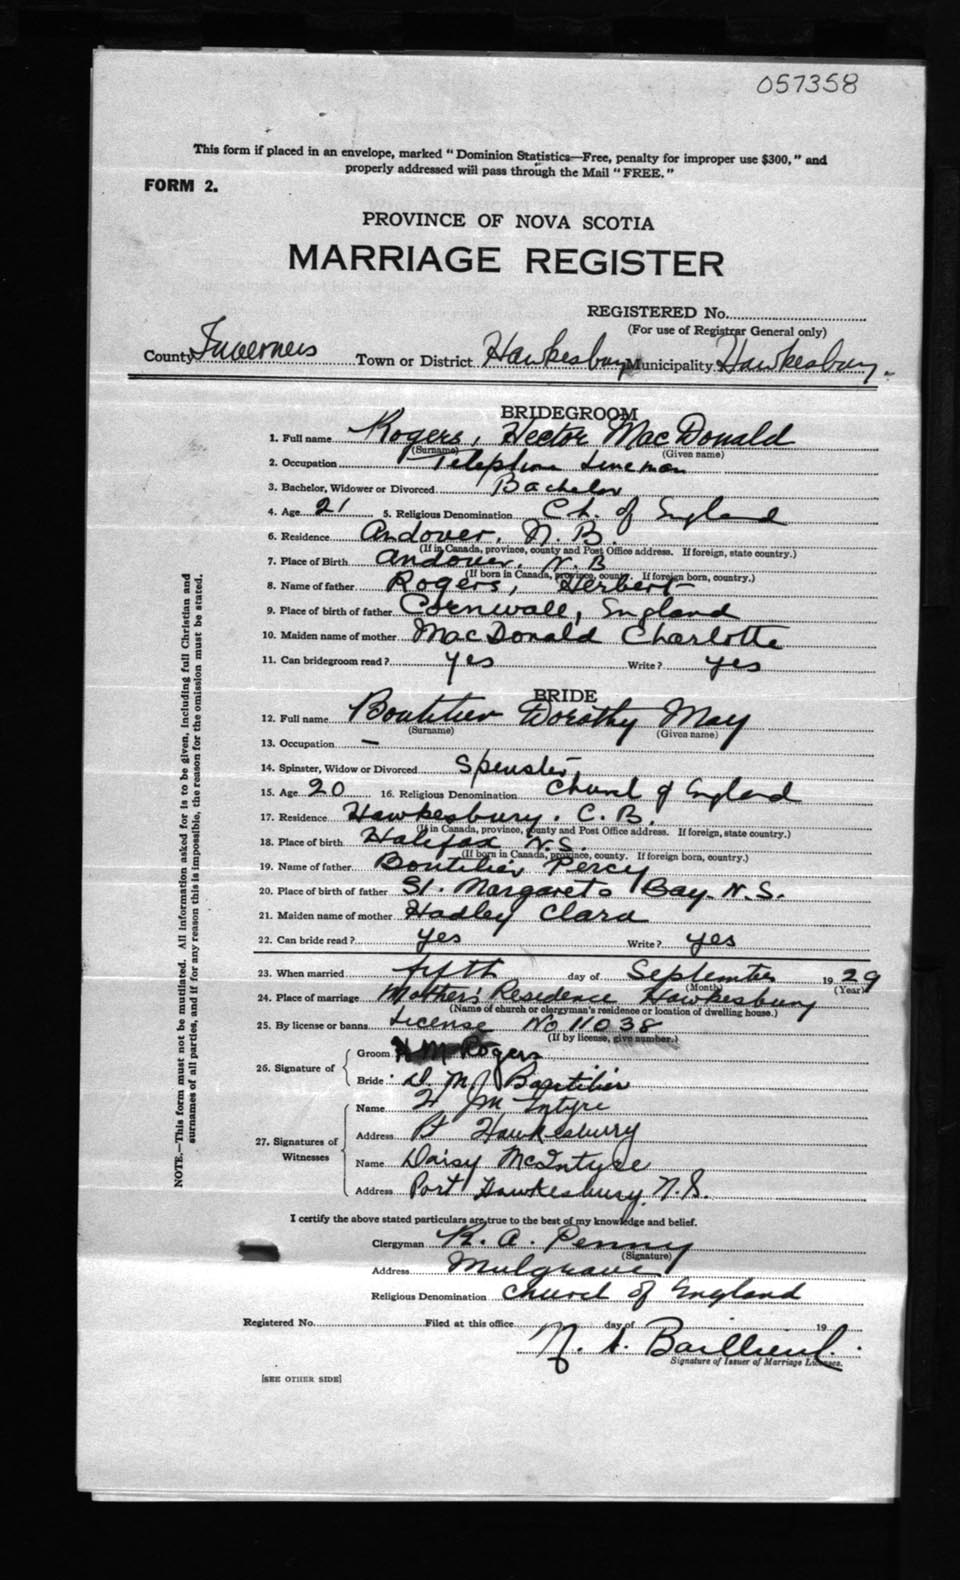 057358
This form if placed in an envelope, marked "Dominion Statistics—Free, penalty for improper use $300," and
properly addressed will pass through the Mail "FREE."
FORM 2.
PROVINCE OF NOVA SCOTIA
MARRIAGE REGISTER
REGISTERED No.
(For use of Registrar General only)
County Inverness Town or District Hawkesbury Municipality Hawkesbury.
BRIDEGROOM
1. Full name Rogers, Hector MacDonald
(Surname) (Given name)
2. Occupation Telephone Lineman
3. Bachelor, Widower or Divorced Bachelor
4. Age 21 5. Religious Denomination Ch. of England
6. Residence Andover, N. B.
(If in Canada, province, county and Post Office address. If foreign, state country.)
7. Place of Birth Andover, N. B
(If born in Canada, province, county. If foreign born, country.)
8. Name of father Rogers, Herbert
9. Place of birth of father Cornwall, England
10. Maiden name of mother MacDonald Charlotte
11. Can bridegroom read? yes Write? yes
BRIDE
12. Full name Boutilier Dorothy May
(Surname) (Given name)
13. Occupation —
14. Spinster, Widow or Divorced Spinster
15. Age 20 16. Religious Denomination Church of England
17. Residence Hawkesbury. C. B.
(If in Canada, province, county and Post Office address. If foreign, state country.)
18. Place of birth Halifax N.S.
(If born in Canada, province, county. If foreign born, country.)
19. Name of father Boutilier Percy
20. Place of birth of father St. Margarets Bay. N. S.
21. Maiden name of mother Hadley Clara
22. Can bride read? yes Write? yes
23. When married fifth day of September 1929
(Month) (Year)
24. Place of marriage Mother's Residence Hawkesbury
(Name of church or clergyman's residence or location of dwelling house.)
25. By license or banns License No 11038
(If by license, give number.)
26. Signature of
Groom H M Rogers
Bride D. M. Boutilier
27. Signatures of Witnesses
Name McIntyre
Address Pt Hawkesbury
Name Daisy McIntyre
Address Port Hawkesbury N. S.
I certify the above stated particulars are true to the best of my knowledge and belief.
Clergyman R. A. Penny
(Signature)
Address Mulgrave
Religious Denomination Church of England
Registered No. Filed at this office day of 19
Signature of Issuer of Marriage Licenses.
[SEE OTHER SIDE]
NOTE.—This form must not be mutilated. All information asked for is to be given, including full Christian and
surnames of all parties, and if for any reason this is impossible, the reason for the omission must be stated.